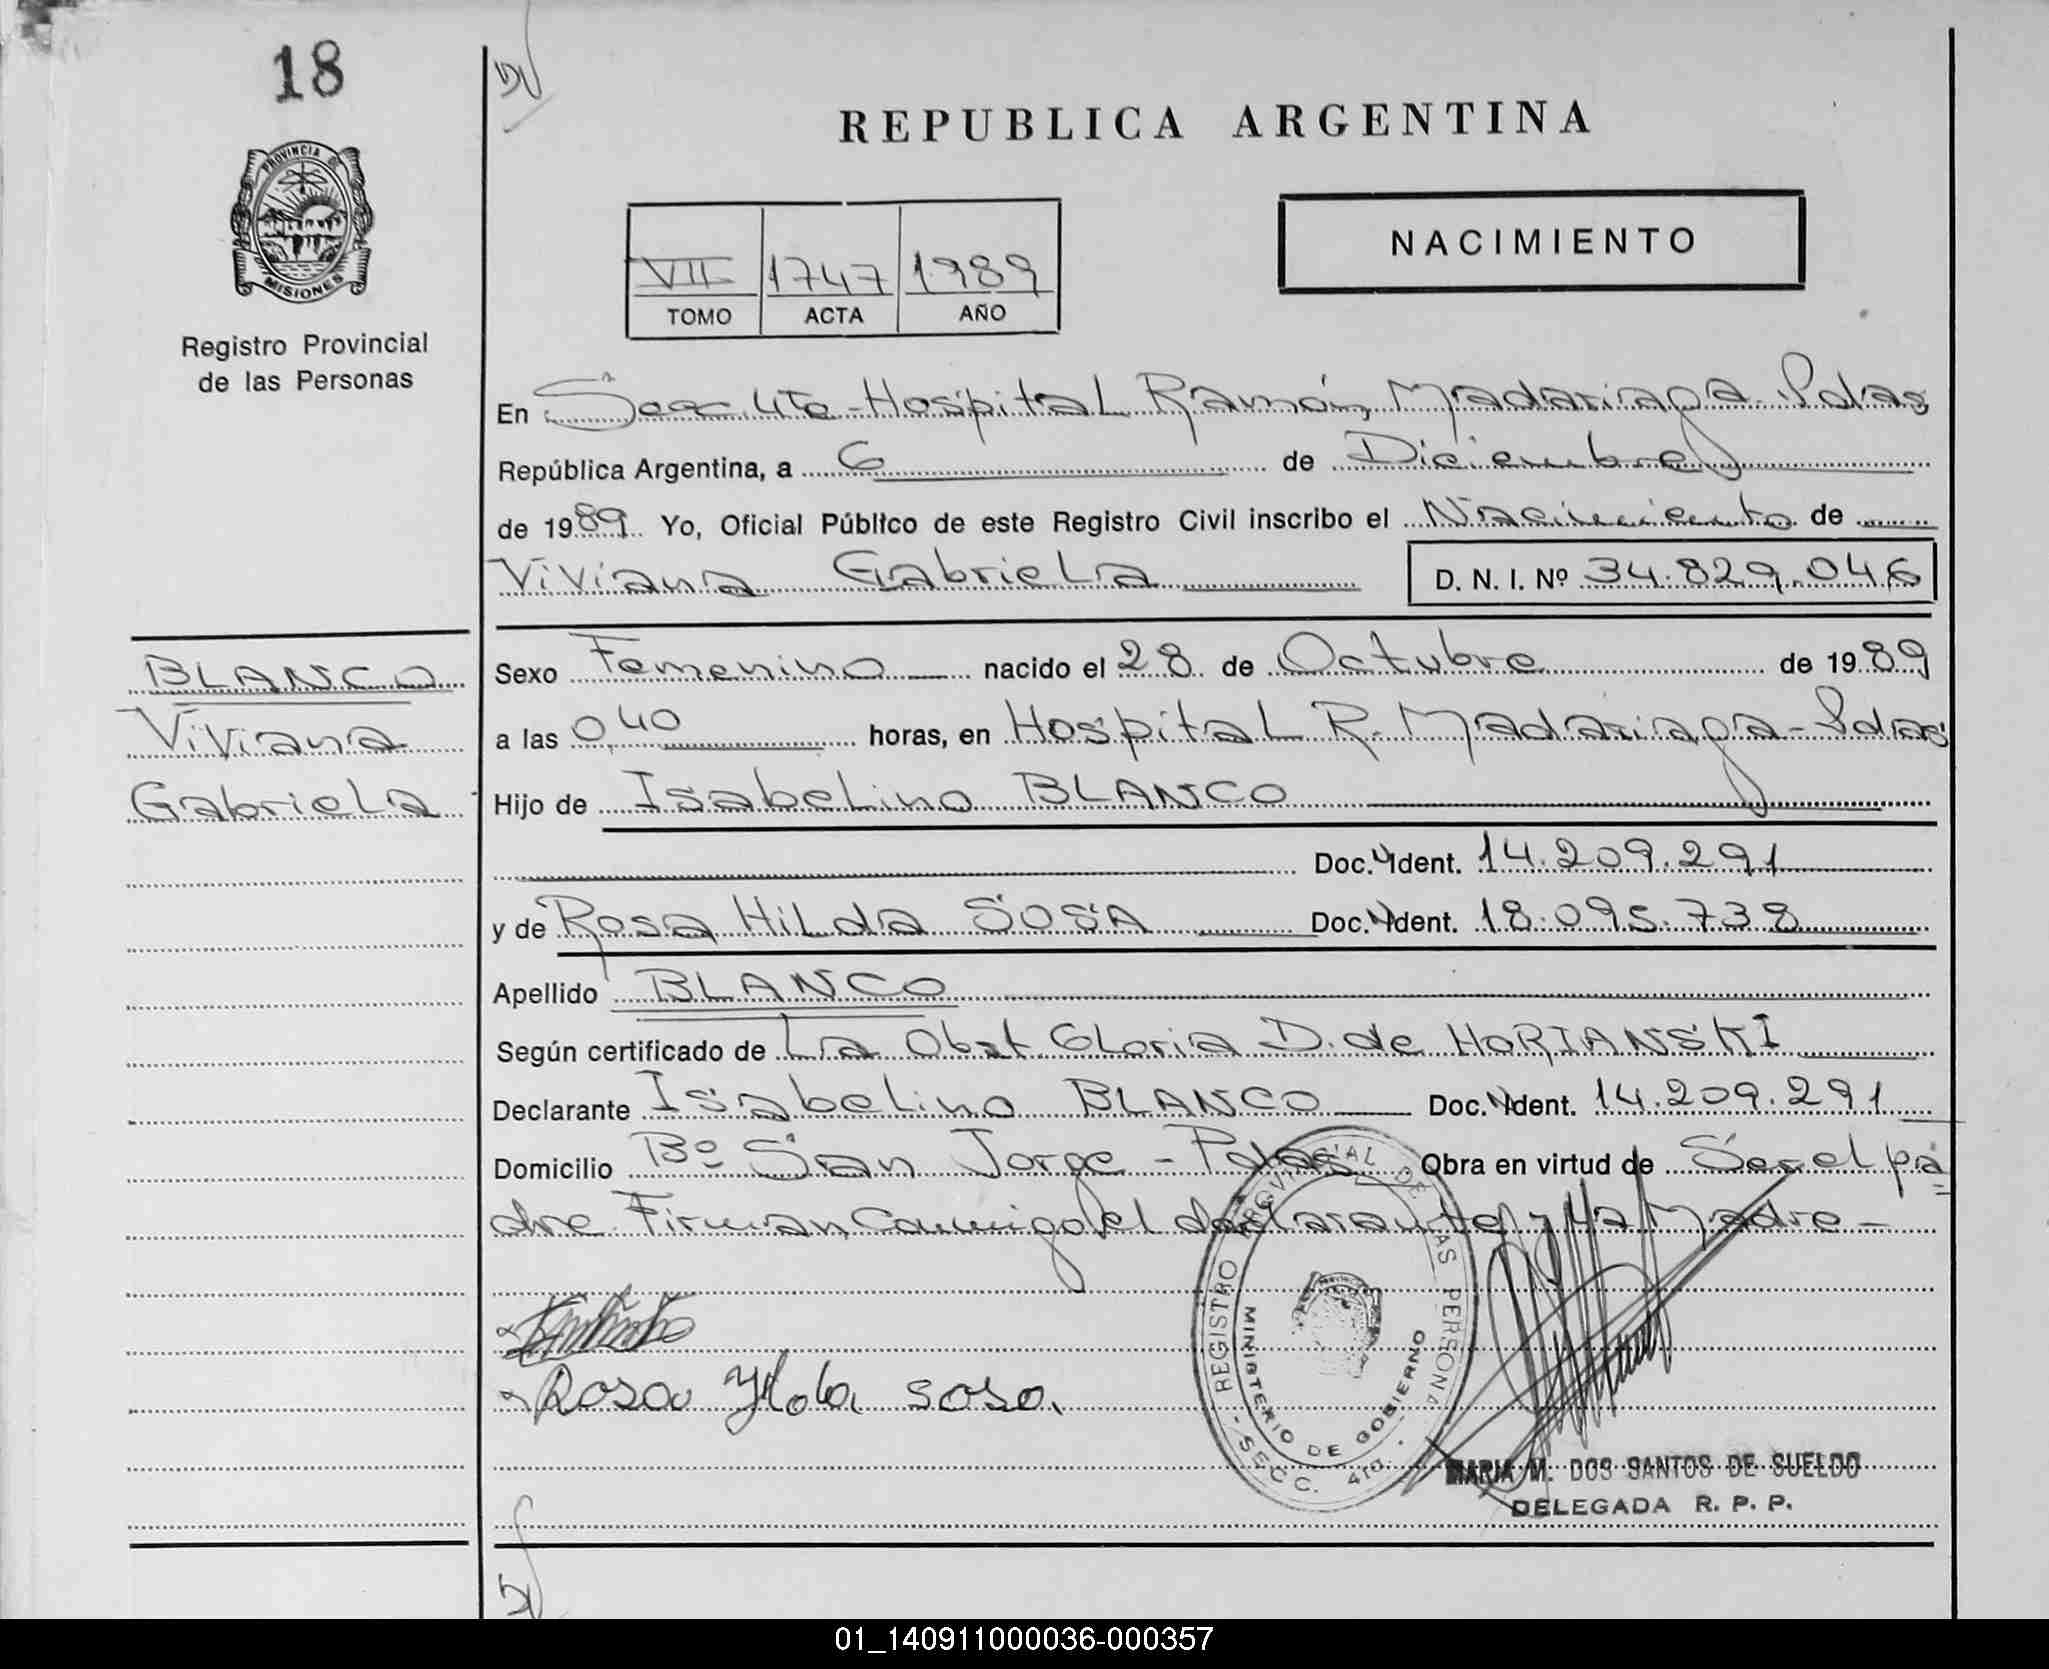 18
PROVINCIA DE
MISIONES
Registro Provincial
de las Personas
REPUBLICA ARGENTINA
VII 1747 1989
TOMO ACTA AÑO
NACIMIENTO
En Secc. 4ta - Hospital Ramón Madariaga - Pdas
República Argentina, a 6 de Diciembre
de 1989 Yo, Oficial Público de este Registro Civil inscribo el Nacimiento de
Viviana Gabriela D. N. I. Nº 34.829.046
BLANCO
Viviana
Gabriela
Sexo Femenino nacido el 28 de Octubre de 1989
a las 0,40 horas, en Hospital R. Madariaga - Pdas
Hijo de Isabelino BLANCO
Doc. Ident. 14.209.291
y de Rosa Hilda SOSA Doc. Ident. 18.095.738
Apellido BLANCO
Según certificado de La Obst. Gloria D. de HORIANSKI
Declarante Isabelino BLANCO Doc. Ident. 14.209.291
Domicilio Bº San Jorge - Pdas Obra en virtud de Ser el pa
dre Firman conmigo el declarante y la Madre -
Rosa Ylda sosa.
REGISTRO PROVINCIAL DE LAS PERSONAS
MINISTERIO DE GOBIERNO
- SECC. 4ta. -
MARIA M. DOS SANTOS DE SUELDO
DELEGADA R. P. P.
01_140911000036-000357